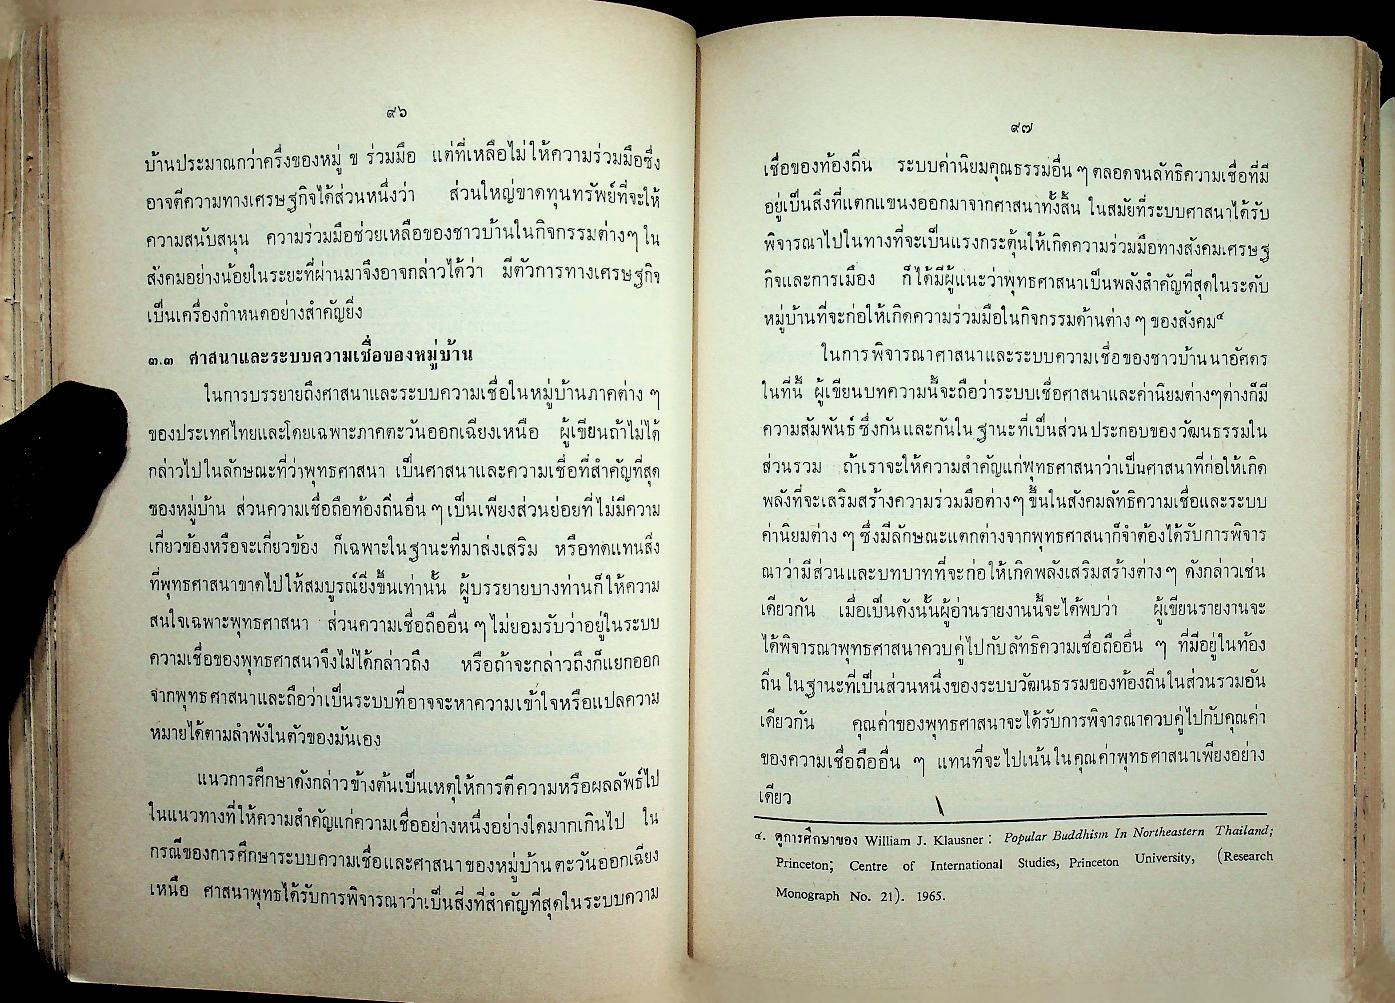 ๙๖
บ้านประมาณกว่าครึ่งของหมู่ ข ร่วมมือ แต่ที่เหลือไม่ให้ความร่วมมือซึ่ง
อาจตีความทางเศรษฐกิจได้ส่วนหนึ่งว่า ส่วนใหญ่ขาดทุนทรัพย์ที่จะให้
ความสนับสนุน ความร่วมมือช่วยเหลือของชาวบ้านในกิจกรรมต่างๆ ใน
สังคมอย่างน้อยในระยะที่ผ่านมาจึงอาจกล่าวได้ว่า มีตัวการทางเศรษฐกิจ
เป็นเครื่องกำหนดอย่างสำคัญยิ่ง
๓.๓ ศาสนาและระบบความเชื่อของหมู่บ้าน
ในการบรรยายถึงศาสนาและระบบความเชื่อในหมู่บ้านภาคต่าง ๆ
ของประเทศไทยและโดยเฉพาะภาคตะวันออกเฉียงเหนือ ผู้เขียนถ้าไม่ได้
กล่าวไปในลักษณะที่ว่าพุทธศาสนา เป็นศาสนาและความเชื่อที่สำคัญที่สุด
ของหมู่บ้าน ส่วนความเชื่อถือท้องถิ่นอื่น ๆ เป็นเพียงส่วนย่อยที่ไม่มีความ
เกี่ยวข้องหรือจะเกี่ยวข้อง ก็เฉพาะในฐานะที่มาส่งเสริม หรือทดแทนสิ่ง
ที่พุทธศาสนาขาดไปให้สมบูรณ์ยิ่งขึ้นเท่านั้น ผู้บรรยายบางท่านก็ให้ความ
สนใจเฉพาะพุทธศาสนา ส่วนความเชื่อถืออื่น ๆ ไม่ยอมรับว่าอยู่ในระบบ
ความเชื่อของพุทธศาสนาจึงไม่ได้กล่าวถึง หรือถ้าจะกล่าวถึงก็แยกออก
จากพุทธศาสนาและถือว่าเป็นระบบที่อาจจะหาความเข้าใจหรือแปลความ
หมายได้ตามลำพังในตัวของมันเอง
แนวการศึกษาดังกล่าวข้างต้นเป็นเหตุให้การตีความหรือผลลัพธ์ไป
ในแนวทางที่ให้ความสำคัญแก่ความเชื่ออย่างหนึ่งอย่างใดมากเกินไป ใน
กรณีของการศึกษาระบบความเชื่อและศาสนาของหมู่บ้านตะวันออกเฉียง
เหนือ ศาสนาพุทธได้รับการพิจารณาว่าเป็นสิ่งที่สำคัญที่สุดในระบบความ
๙๗
เชื่อของท้องถิ่น ระบบค่านิยมคุณธรรมอื่น ๆ ตลอดจนลัทธิความเชื่อที่มี
อยู่เป็นสิ่งที่แตกแขนงออกมาจากศาสนาทั้งสิ้น ในสมัยที่ระบบศาสนาได้รับ
พิจารณาไปในทางที่จะเป็นแรงกระตุ้นให้เกิดความร่วมมือทางสังคมเศรษฐ
กิจและการเมือง ก็ได้มีผู้แนะว่าพุทธศาสนาเป็นพลังสำคัญที่สุดในระดับ
หมู่บ้านที่จะก่อให้เกิดความร่วมมือในกิจกรรมด้านต่าง ๆ ของสังคม๔
ในการพิจารณาศาสนาและระบบความเชื่อของชาวบ้านนาอัศดร
ในที่นี้ ผู้เขียนบทความนี้จะถือว่าระบบเชื่อศาสนาและค่านิยมต่างๆต่างก็มี
ความสัมพันธ์ซึ่งกันและกันในฐานะที่เป็นส่วนประกอบของวัฒนธรรมใน
ส่วนรวม ถ้าเราจะให้ความสำคัญแก่พุทธศาสนาว่าเป็นศาสนาที่ก่อให้เกิด
พลังที่จะเสริมสร้างความร่วมมือต่างๆ ขึ้นในสังคมลัทธิความเชื่อและระบบ
ค่านิยมต่าง ๆ ซึ่งมีลักษณะแตกต่างจากพุทธศาสนาก็จำต้องได้รับการพิจาร
ณาว่ามีส่วนและบทบาทที่จะก่อให้เกิดพลังเสริมสร้างต่างๆ ดังกล่าวเช่น
เดียวกัน เมื่อเป็นดังนั้นผู้อ่านรายงานนี้จะได้พบว่า ผู้เขียนรายงานจะ
ได้พิจารณาพุทธศาสนาควบคู่ไปกับลัทธิความเชื่อถืออื่น ๆ ที่มีอยู่ในท้อง
ถิ่น ในฐานะที่เป็นส่วนหนึ่งของระบบวัฒนธรรมของท้องถิ่นในส่วนรวมอัน
เดียวกัน คุณค่าของพุทธศาสนาจะได้รับการพิจารณาควบคู่ไปกับคุณค่า
ของความเชื่อถืออื่น ๆ แทนที่จะไปเน้นในคุณค่าพุทธศาสนาเพียงอย่าง
เดียว
๔. ดูการศึกษาของ William J. Klausner: Popular Buddhism In Northeastern Thailand;
Princeton; Centre of International Studies, Princeton University, (Research
Monograph No. 21). 1965.